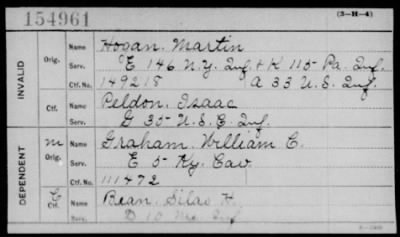 154961
(3-H-4)
INVALID
Orig. Name Hogan, Martin
Serv. E 146 N.Y. Inf & K 115 Pa. Inf.
Ctf. No. 149218 A 33 U.S. Inf.
Ctf. Name Peldon, Isaac
Serv. G 35 U.S.C. Inf.
DEPENDENT
M Orig. Name Graham, William C.
Serv. E 5 Ky. Cav
Ctf. No. 111472
C Ctf. Name Bean, Silas H.
Serv. D 10 Me. Inf